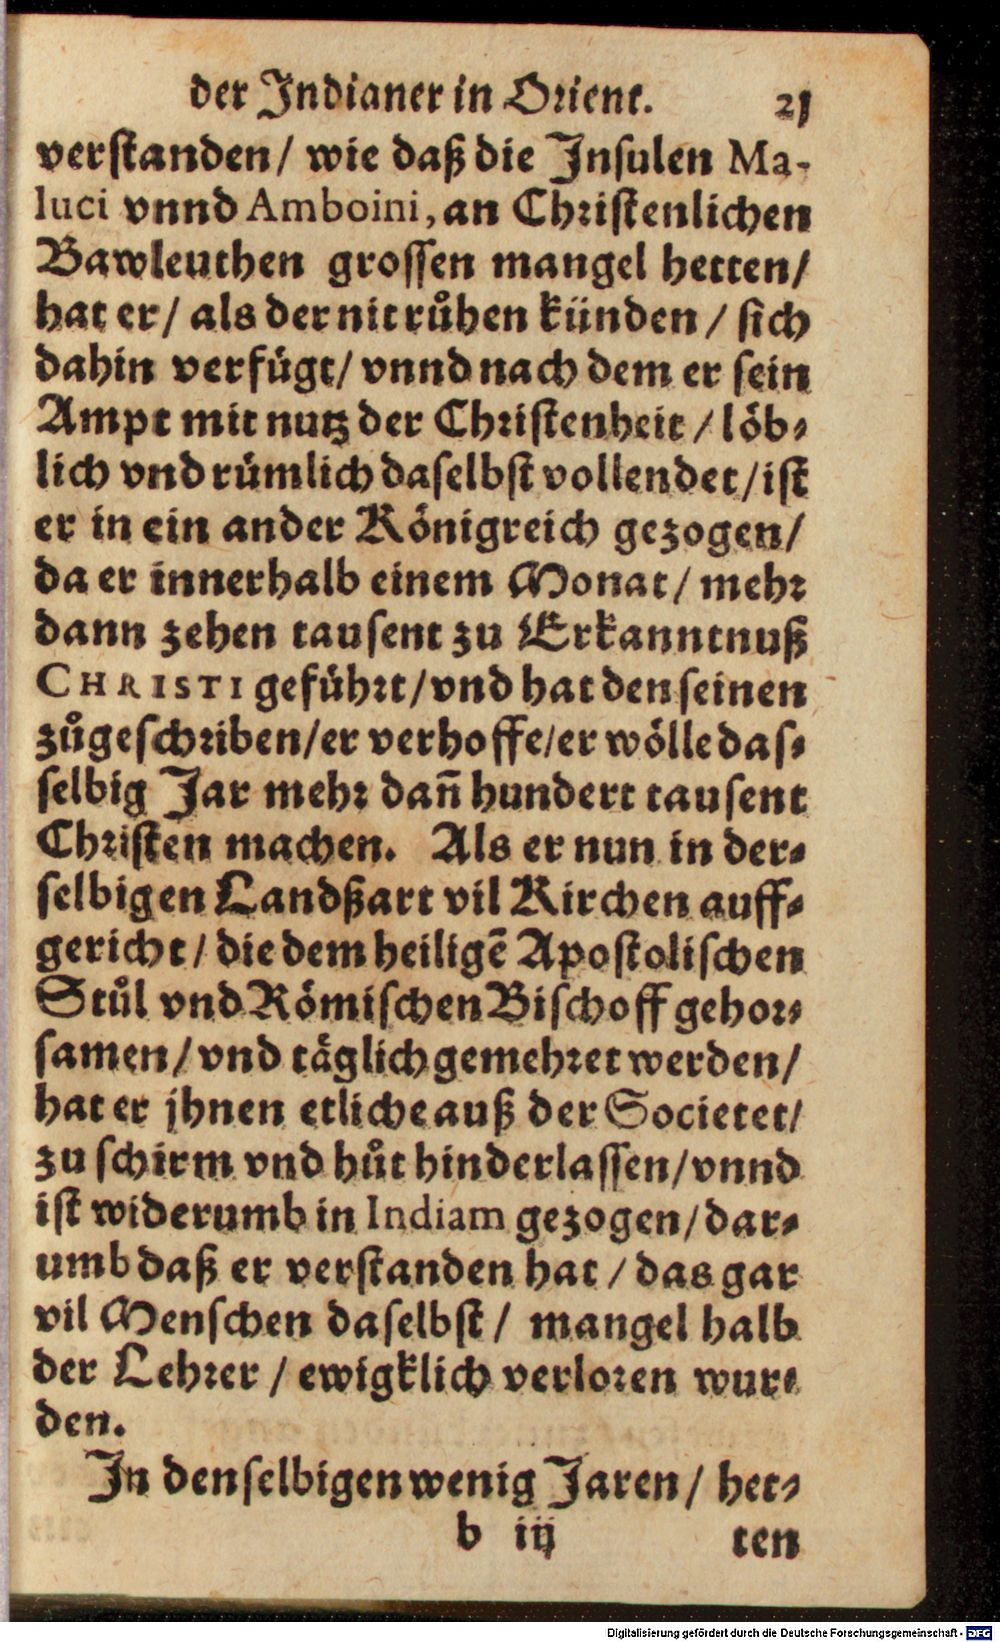 der Indianer in Orient. 21
verstanden/ wie daß die Insulen Ma-
luci vnnd Amboini, an Christenlichen
Bawleuthen grossen mangel hetten/
hat er/ als der nit růhen künden/ sich
dahin verfügt/ vnnd nach dem er sein
Ampt mit nutz der Christenheit/ löb-
lich vnd rümlich daselbst vollendet/ ist
er in ein ander Königreich gezogen/
da er innerhalb einem Monat/ mehr
dann zehen tausent zu Erkanntnuß
CHRISTI geführt/ vnd hat den seinen
zůgeschriben/ er verhoffe/ er wölle das-
selbig Jar mehr dañ hundert tausent
Christen machen. Als er nun in der-
selbigen Landßart vil Kirchen auff-
gericht/ die dem heiligẽ Apostolischen
Stůl vnd Römischen Bischoff gehor-
samen/ vnd täglich gemehret werden/
hat er jhnen etliche auß der Societet/
zu schirm vnd hůt hinderlassen/ vnnd
ist widerumb in Indiam gezogen/ dar-
umb daß er verstanden hat/ das gar
vil Menschen daselbst/ mangel halb
der Lehrer/ ewigklich verloren wur-
den.
In denselbigen wenig Jaren/ het-
b iij ten
Digitalisierung gefördert durch die Deutsche Forschungsgemeinschaft - DFG